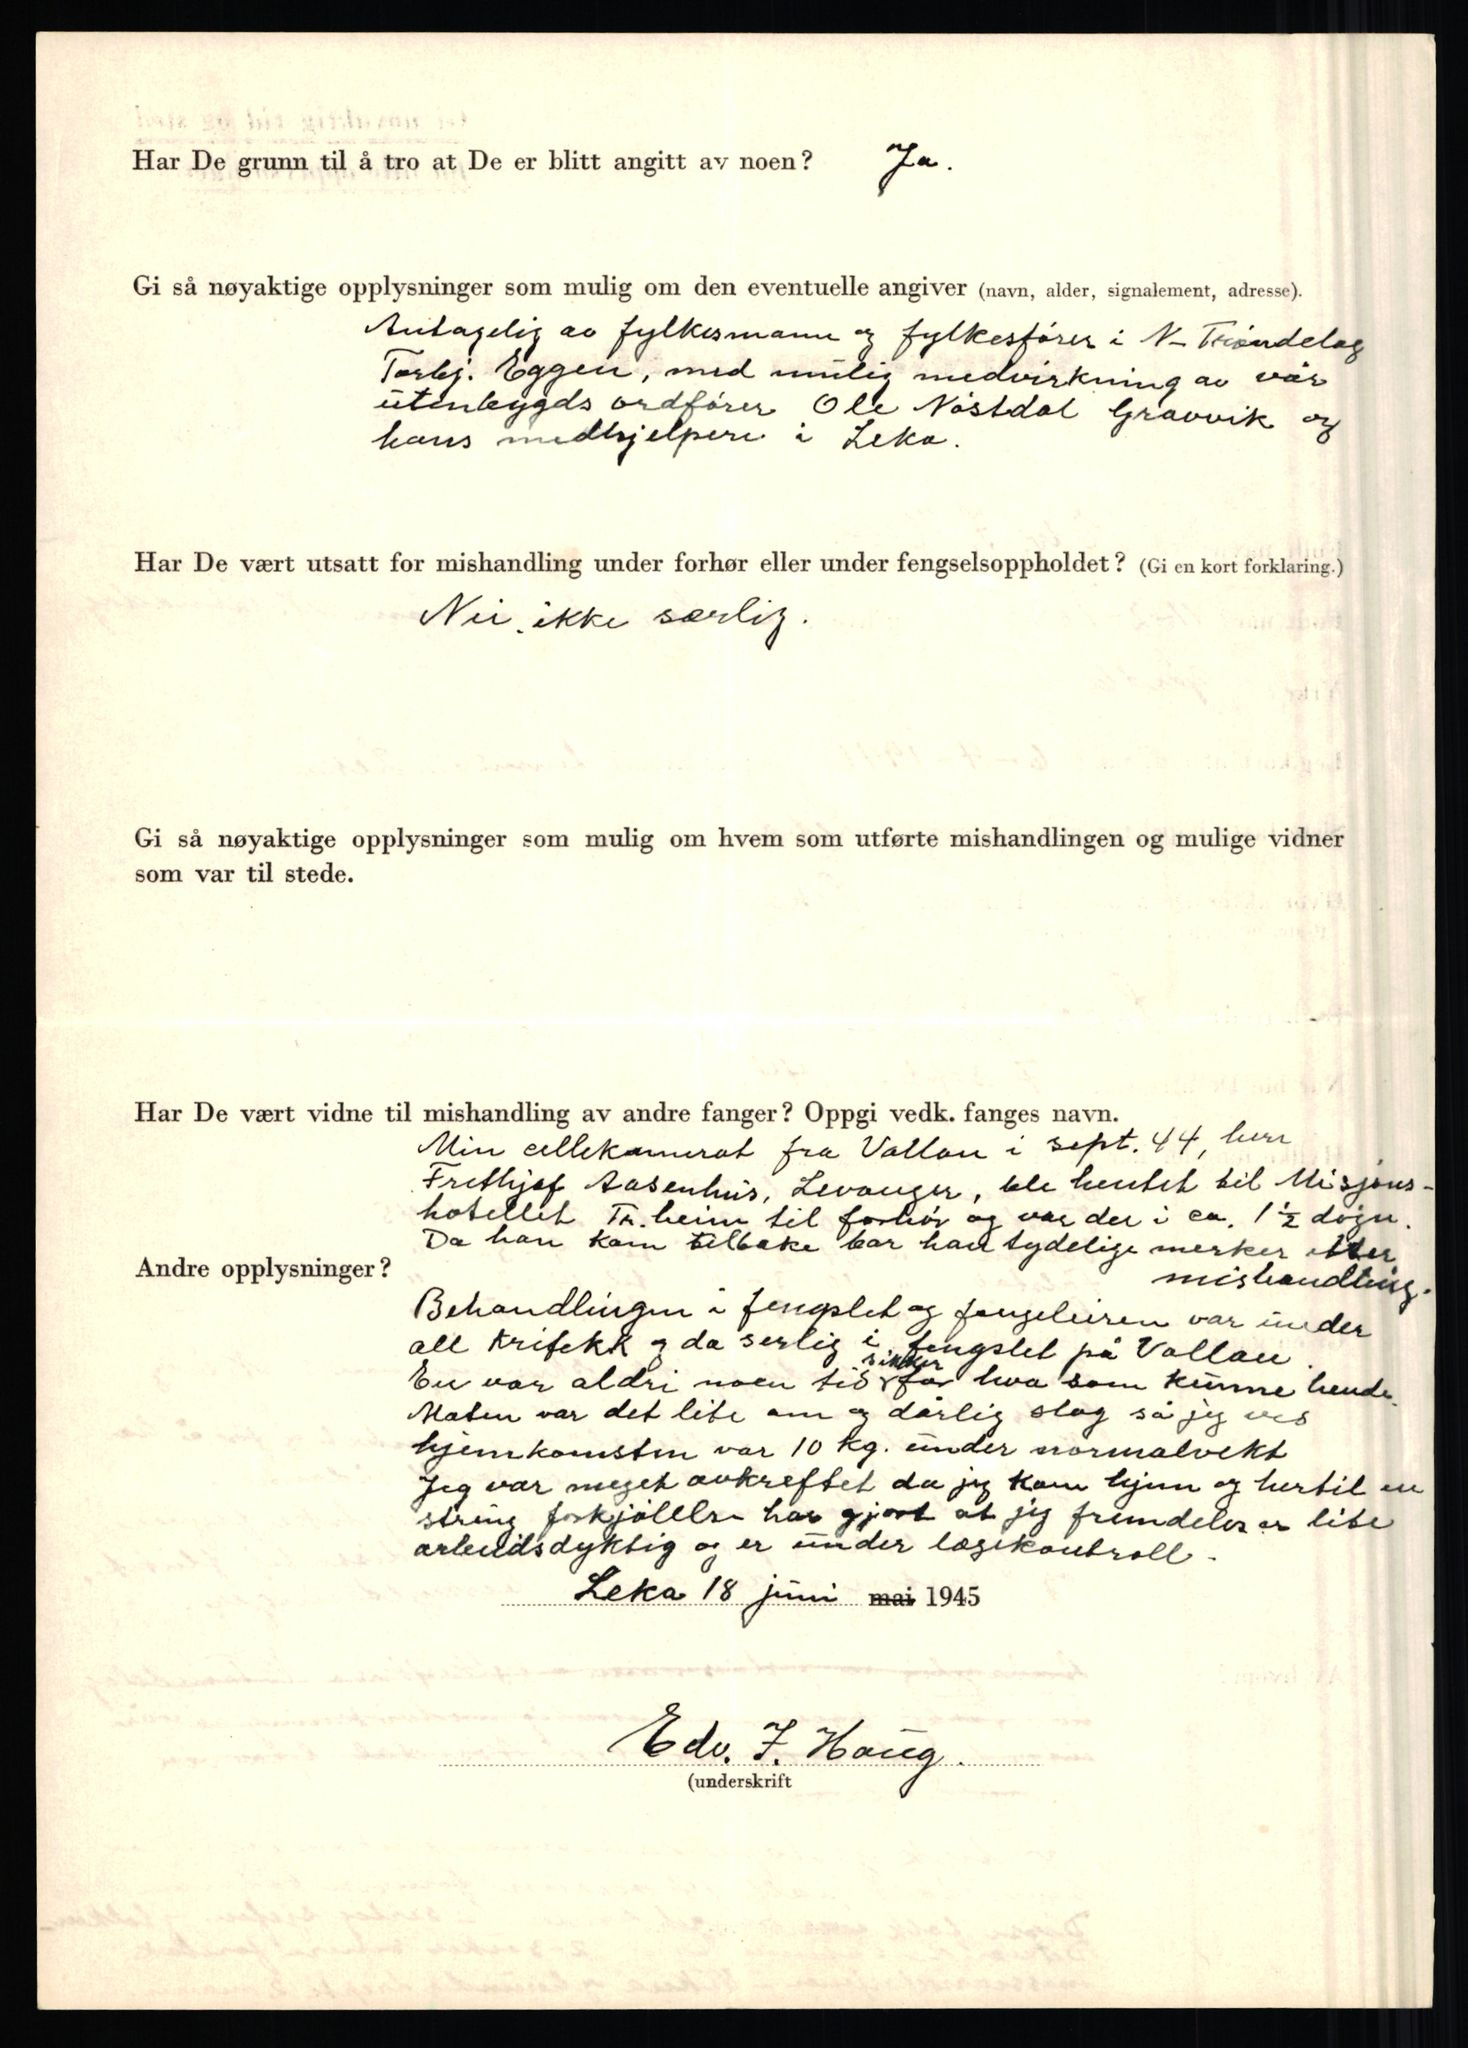 Har De grunn til å tro at De er blitt angitt av noen? Ja.
Gi så nøyaktige opplysninger som mulig om den eventuelle angiver (navn, alder, signalement, adresse).
Antagelig av fylkesmann og fylkesfører i N-Trøndelag
Torbj. Eggen, med mulig medvirkning av vår
utenbygds ordfører Ole Nøstdal Gravvik og
hans medhjelpere i Leka.
Har De vært utsatt for mishandling under forhør eller under fengselsoppholdet? (Gi en kort forklaring.)
Nei, ikke særlig.
Gi så nøyaktige opplysninger som mulig om hvem som utførte mishandlingen og mulige vidner
som var til stede.
Har De vært vidne til mishandling av andre fanger? Oppgi vedk. fanges navn.
Min cellekamerat fra Vollan i sept. 44, herr
Frethjof Aasenhus, Levanger, ble hentet til Misjons-
hotellet Tr.heim til forhør og var der i ca. 1 ½ døgn.
Da han kom tilbake bar han tydelige merker etter
mishandling.
Andre opplysninger?
Behandlingen i fengslet og fangeleiren var under
all kritekk og da serlig i fengslet på Vollan.
En var aldri noen tid sikker for hva som kunne hende.
Maten var det lite om og dårlig slag så jeg ved
hjemkomsten var 10 kg. under normalvekt
Jeg var meget avkreftet da jeg kom hjem og hertil en
streng forkjølelse har gjort at jeg fremdeles er lite
arbeidsdyktig og er under lægekontroll.
Leka 18 juni mai 1945
Edv. F. Haug.
(underskrift